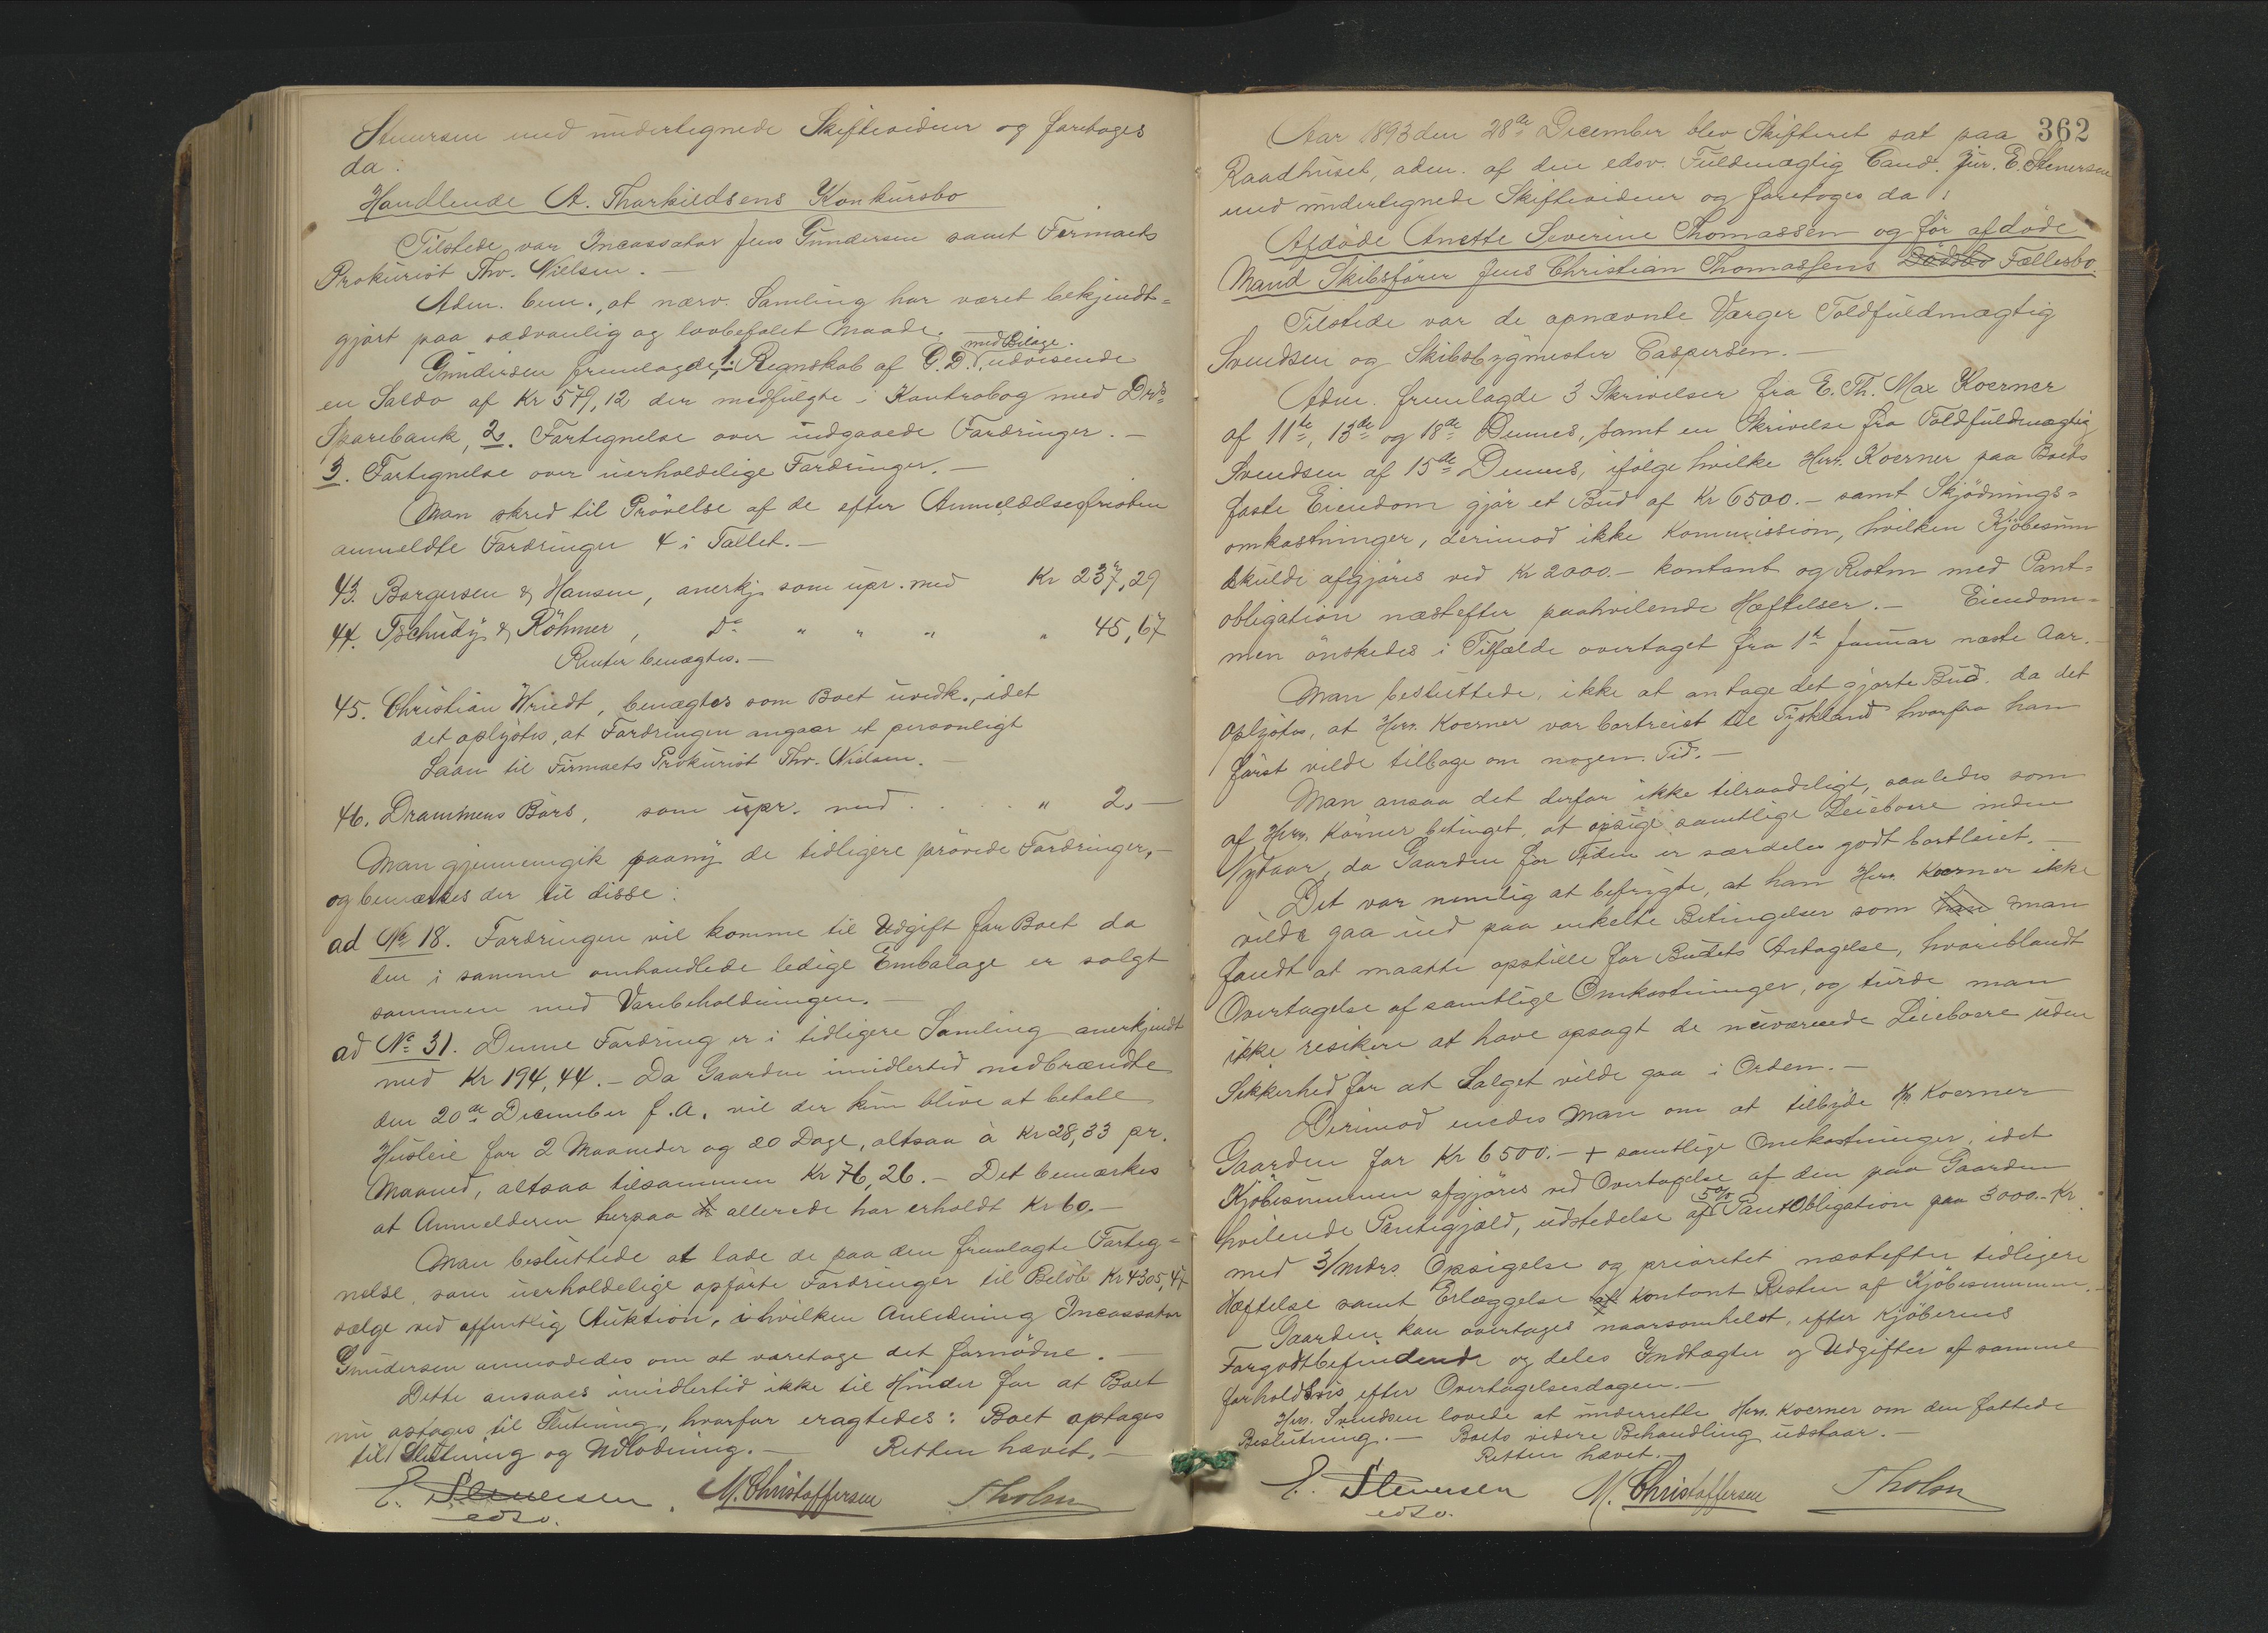 Stenersen med undertegnede Skiftevidner og foretoges
da:
Handlende A. Thorkildsens Konkursbo
Tilstede var Incassator Jens Gundersen samt Firmaets
Prokurist Thv. Nielsen. —
Adm. bem., at nærv. Samling har været bekjendt=
gjort paa sædvanlig og lovbefalet Maade. —
med Bilage.
Gundersen fremlagde, 1. Regnskab af G. D. udvisende
en Saldo af Kr 579,12 der medfulgte i Kontrabog med Drs
Sparebank, 2. Fortegnelse over indgaaede Fordringer. —
3. Fortegnelse over uerholdelige Fordringer. —
Man skred til Prövelse af de efter Anmeldelsesfristen
anmeldte Fordringer 4 i Tallet. —
43. Borgersen & Hansen, anerkj. som upr. med Kr 237,29
44. Tschudy & Röhmer, Do " " " " 45,67
Renter benægtes. —
45. Christian Wriedt, benægtes som Boet uvedk., idet
det oplystes, at Fordringen angaar et personligt
Laan til Firmaets Prokurist Thv. Nielsen. —
46. Drammens Börs, som upr. med . . . . " 2,—
Man gjennemgik paany de tidligere prövede Fordringer, —
og bemærkes der til disse:
ad No 18. Fordringen vil komme til Udgift for Boet da
den i samme omhandlede ledige Embalage er solgt
sammen med Varebeholdningen. —
ad No 31. Denne Fordring er i tidligere Samling anerkjendt
med Kr 194,44. — Da Gaarden imidlertid nedbrændte
den 20de December f. A. vil der kun blive at betale
Husleie for 2 Maaneder og 20 Dage, altsaa à Kr 28,33 pr.
Maaned, altsaa tilsammen Kr 76,26. — Det bemærkes
at Anmelderen herpaa allerede har erholdt Kr 60. —
Man besluttede at lade de paa den fremlagte Forteg=
nelse som uerholdelige opförte Fordringer til Belöb Kr 4305,47
sælge ved offentlig Auktion, i hvilken Anledning Incassator
Gundersen anmodedes om at varetage det fornödne. —
Dette ansaaes imidlertid ikke til Hinder for at Boet
nu optages til Slutning, hvorfor eragtedes: Boet optages
til Slutning og Udlodning. — Retten hævet. —
E. Stenersen. M. Christoffersen Tholm
edsv.
362
Aar 1893 den 28de December blev Skifteret sat paa
Raadhuset, adm. af den edsv. Fuldmægtig Cand. Jur. E. Stenersen
med undertegnede Skiftevidner og foretoges da:
Afdöde Anette Severine Thomassen og för afdöde
Mand Skibsförer Jens Christian Thomassens Dödsbo Fællesbo.
Tilstede var de opnævnte Værger Toldfuldmægtig
Svendsen og Skibsbygmester Caspersen. —
Adm. fremlagde 3 Skrivelser fra E. Th. Max Koerner
af 11te, 13de og 18de Dennes, samt en Skrivelse fra Toldfuldmægtig
Svendsen af 15de Dennes, ifölge hvilke Herr. Koerner paa Boets
faste Eiendom gjör et Bud af Kr 6500.— samt Skjödnings=
omkostninger, derimod ikke Kommission, hvilken Kjöbesum
skulde afgjöres ved Kr 2000.— kontant og Resten med Pant=
obligation næstefter paahvilende Hæftelser. — Eiendom=
men önskedes i Tilfælde overtaget fra 1te Januar næste Aar. —
Man besluttede, ikke at antage det gjorte Bud, da det
oplystes, at Herr. Koerner var bortreist til Tyskland hvorfra han
först vilde tilbage om nogen Tid. —
Man ansaa det derfor ikke tilraadeligt, saaledes som
af Herr. Körner betinget, at opsige samtlige Leieboere inden
Nytaar, da Gaarden for Tiden er særdeles godt bortleiet. —
Det var nemlig at befrygte, at han Herr. Koerner ikke
vilde gaa ind paa enkelte Betingelser som han man
fandt at maatte opstille for Budets Antagelse, hvoriblandt
Overtagelse af samtlige Omkostninger, og turde man
ikke resikere at have opsagt de nuværende Leieboere uden
Sikkerhed for at Salget vilde gaa i Orden. —
Derimod enedes man om at tilbyde Hr. Koerner
Gaarden for Kr 6500.— + samtlige Omkostninger, idet
Kjöbesummen afgjöres ved Overtagelse af den paa Gaarden
5%
hvilende Pantegjæld, udstedelse af Pantobligation paa 3000.— Kr
med 3/mdrs. Opsigelse og prioritet næstefter tidligere
Hæftelse samt Erlæggelse af kontant Resten af Kjöbesummen. —
Gaarden kan overtages naarsomhelst, efter Kjöberens
Forgodtbefindende og deles Indtægter og Udgifter af samme
forholdsvis efter Overtagelsesdagen. —
Herr. Svendsen lovede at underrette Herr. Koerner om den fattede
Beslutning. — Boets videre Behandling udstaar. —
Retten hævet. —
E. Stenersen M. Christoffersen Tholm
edsv.